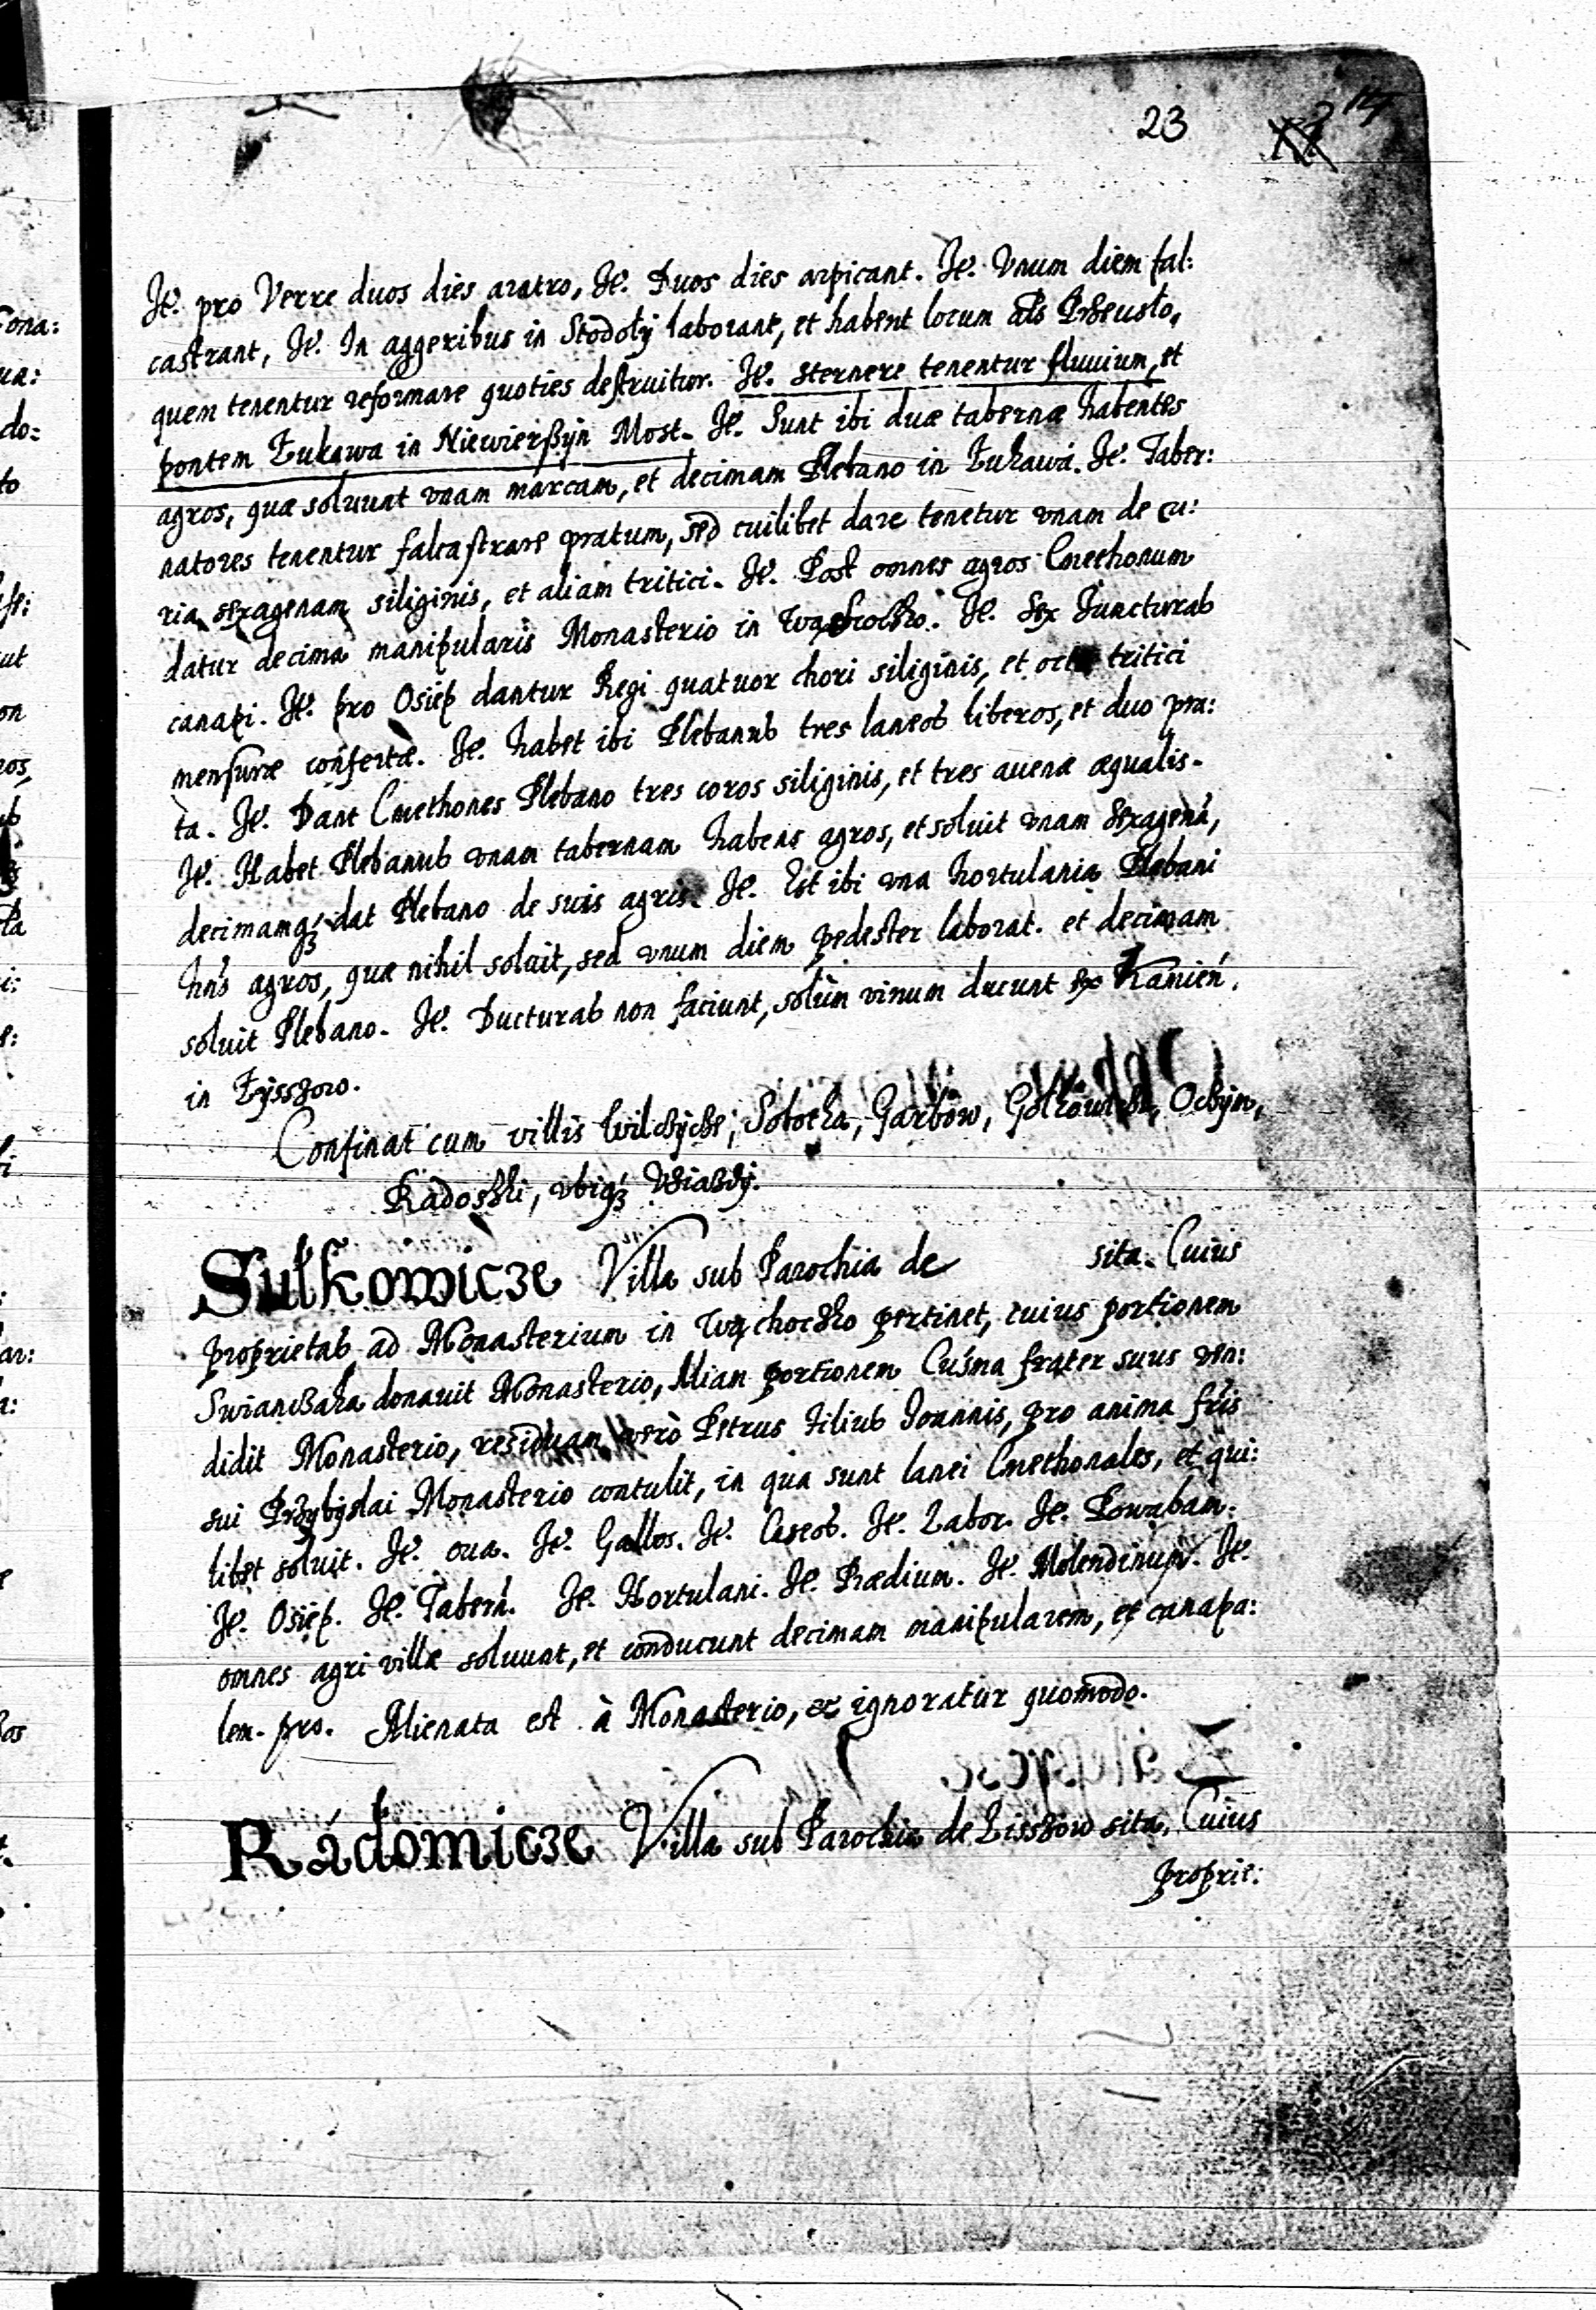 23
It. pro Verre duos dies aratro, It. Duos dies arpicant. It. Vnum diem fal:
castrant, It. In aggeribus in Stodoły laborant, et habent locum als Przeusło,
quem tenentur reformare quoties destruitur. It. sternere tenentur fluuium, et
pontem Łukawa in Niewierszyn Most. It. Sunt ibi duæ tabernæ habentes
agros, quæ soluunt vnam marcam, et decimam Plebano in Łukawa. It. Taber:
natores tenentur falcastrare pratum, sed cuilibet dare tenetur vnam de cu:
ria sexagenam siliginis, et aliam tritici. It. Post omnes agros Cmethonum
datur decima manipularis Monasterio in Wąchocko. It. Sex Juncturas
canapi. It. pro Osiep dantur Regi quatuor chori siliginis, et octo tritici
mensuræ confertæ. It. habet ibi Plebanus tres laneos liberos, et duo pra:
ta. It. Dant Cmethones Plebano tres coros siliginis, et tres auenæ æqualis.
It. Habet Plebanus vnam tabernam habens agros, et soluit vnam sexagenã,
decimamq3 dat Plebano de suis agris. It. Est ibi vna hortulania Plebani
hñs agros, quæ nihil soluit, sed vnum diem pedester laborat. et decimam
soluit Plebano. It. Ducturas non faciunt, solùm vinum ducunt Kamień.
in Łysszow.
Confinat cum villis Wilczyce, Sobotka, Garbow, Ocżyn,
Radoszki, vbiq3 Vsiazdy.
Sułkowicze Villa sub Parochia de sita. Cuius
proprietas ad Monasterium in Wąchocko pertinet, cuius portionem
Swianczaka donauit Monasterio, Aliam portionem Cusma frater suus ven:
didit Monasterio, residuam verò Petrus Filius Joannis, pro anima fris
sui Przybyslai Monasterio contulit, in qua sunt lanei Cmethonales, et qui:
libet soluit. It. oua. It. Gallos. It. Caseos. It. Labor. It. Powabam.
It. Osiep. It. Tabern. It. Hortulani. It. Prædium. It. Molendinum. It.
omnes agri villæ soluunt, et conducunt decimam manipularem, et canapa:
lem. pro. Alienata est à Monasterio, & ignoratur quomodo.
Rádomicze Villa sub Parochia de Lisszow sita, Cuius
proprie: